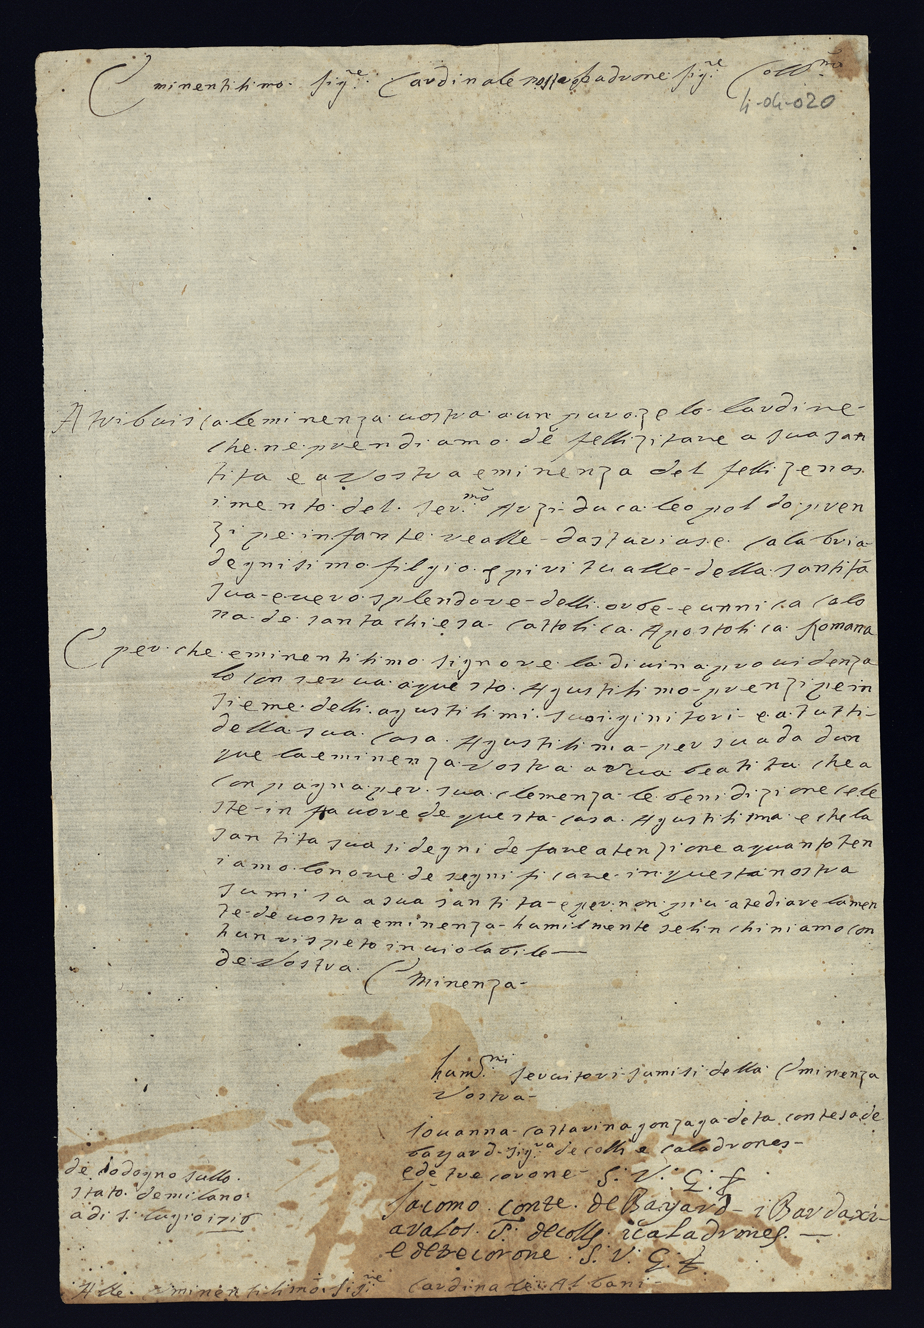 Eminentisimo. Sig.re Cardinale nostro padrone sig.re Coll.mo
4-04-020
Atribuisca leminenza uostra a un puro zelo lardire-
che ne prendiamo de fellizitare a sua san
tita e a Vostra eminenza del fellize nas.
imento del. Ser.mo Arziduca leopoldo pren
zipe infante realle-dasturias e calabria
degnisimo filgio spiritualle-della santità
sua-e uero splendore-delli orbe-e unnica calo
na de santa chiesa-cattolica Apostolica Romana
E per che eminentisimo signore la diuina prouidenza
lo conserua a questo Agustisimo-prenzipe in
sieme delli agustisimi suoi ginitori-e a tutti-
della sua casa Agustisima-persuada dun
que la eminenza Vostra a sua beatitu che a
conpagna per sua clemenza le benidizione cele
ste-in fauore de questa casa Agustisima e che la
santita sua si degni de fare atenzione a quanto ten
iamo lonore de segnificare in questa nostra
sumisa a sua santita-e per non piu atediare lamen
te-de uostra eminenza-humilmente se linchiniamo con
hun rispeto inuiolabile-
de Vostra Eminenza-
hum.mi seruitori sumisi della Eminenza
Vostra-
Iouanna-cattarina gonzaga-deta contesa de
bayard-sig.ra de colli e caladrones-
e de tre corone- S. V. G. f
Jacomo conte de Bayard-i Bardaxi-
aualos S. de colli i caladrones.-
e de tre corone S. V. G. f
de codogno sullo
stato de milano
a di 5 lugio 1716
Alle eminentisimo sig.re Cardinale Albani-